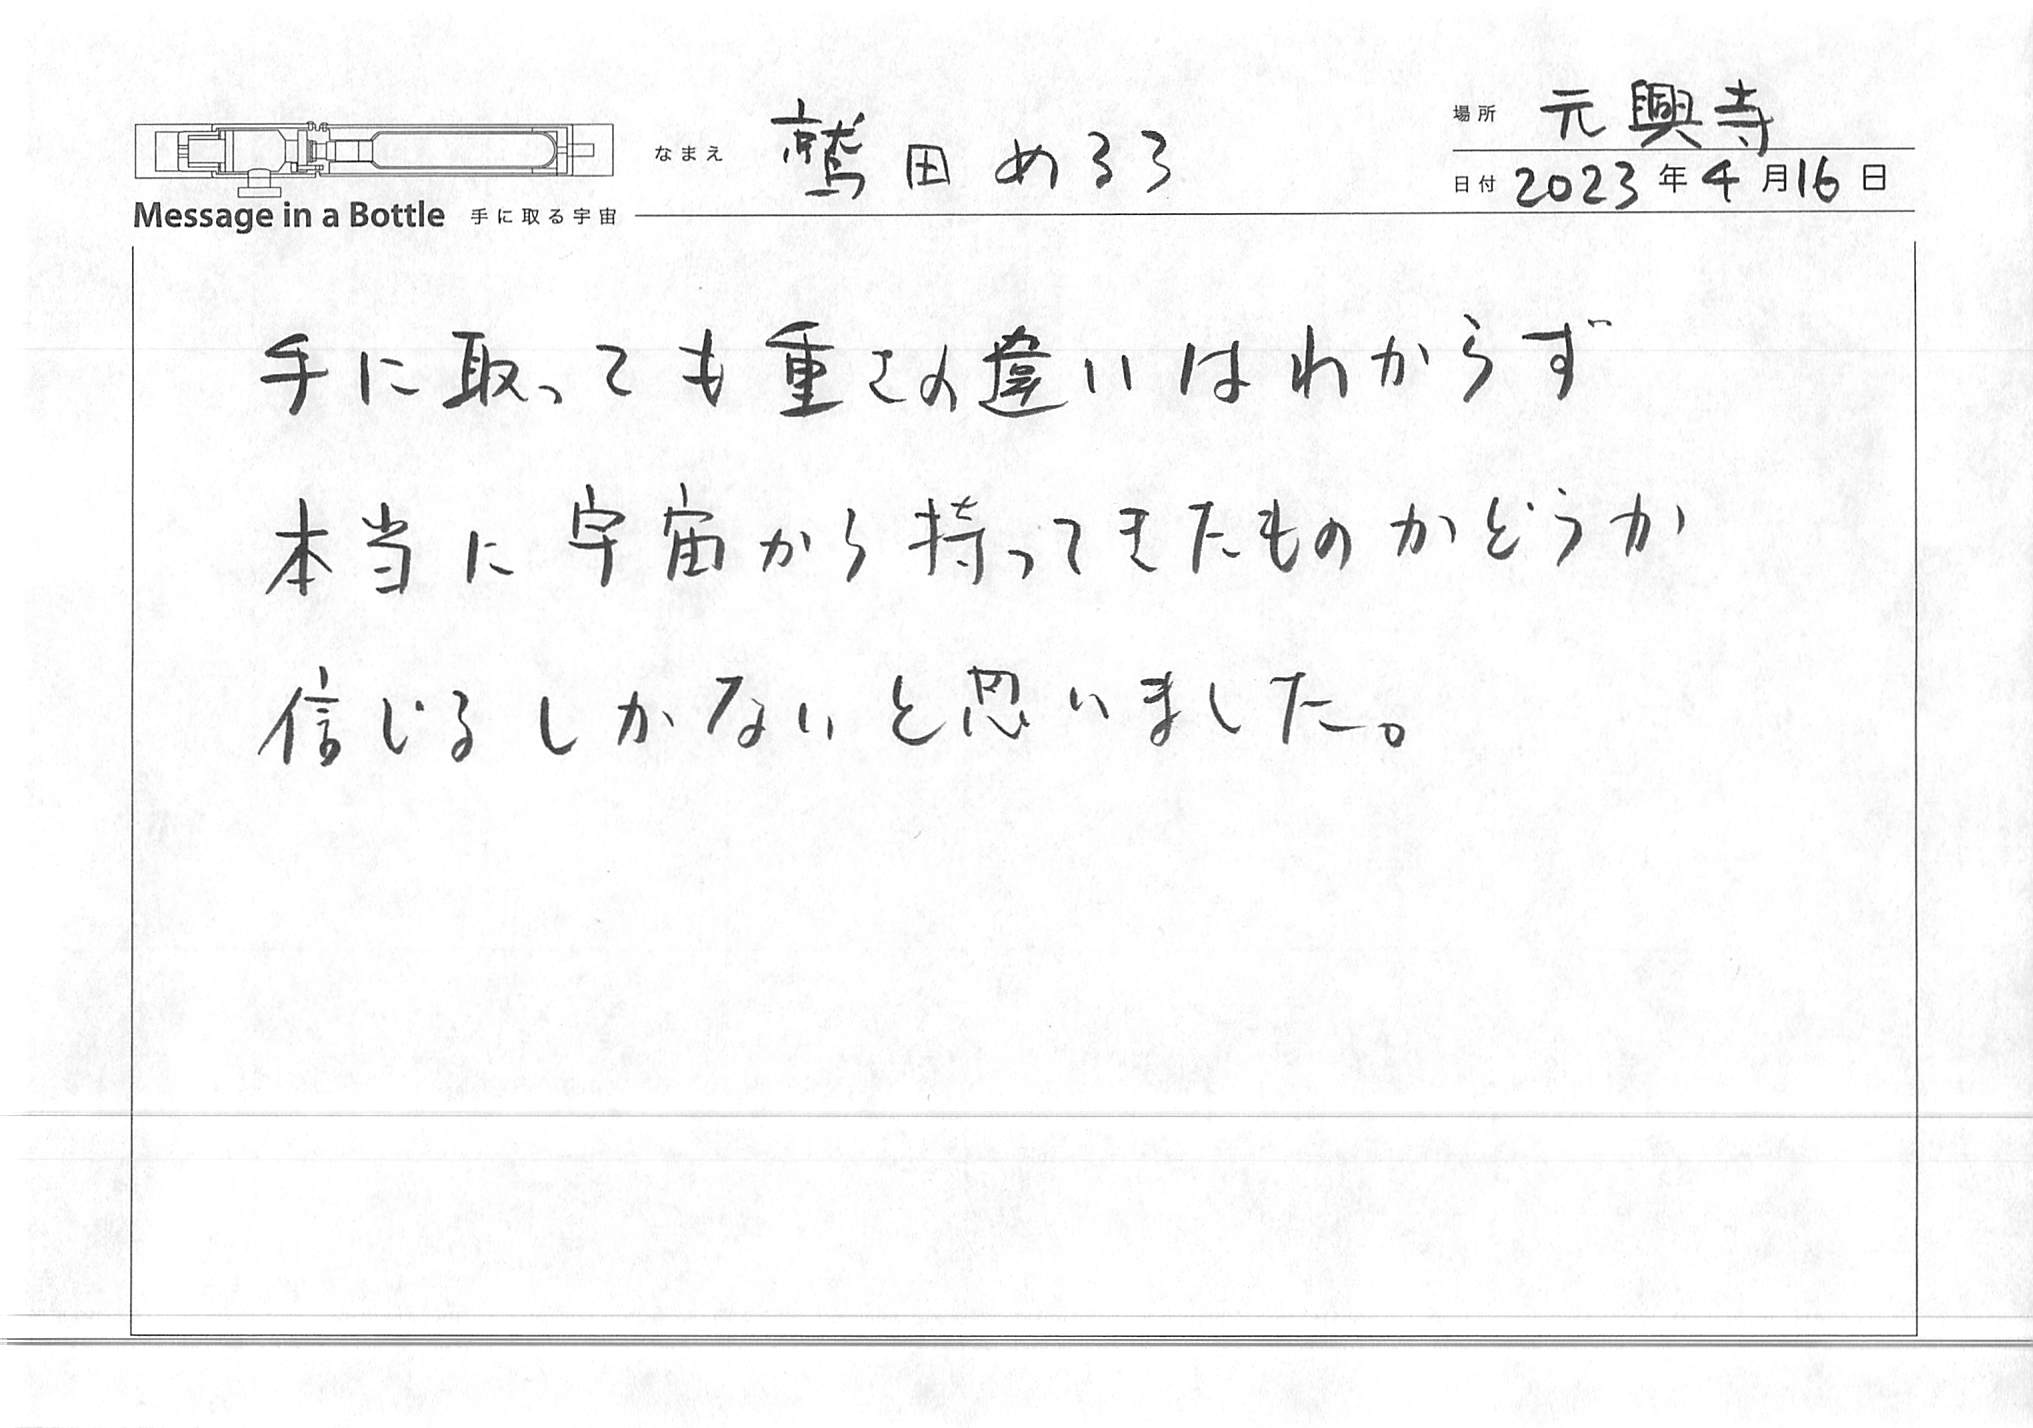 場所 元興寺
なまえ 鷲田めるろ
日付 2023年4月16日
Message in a Bottle 手に取る宇宙
手に取っても重さの違いはわからず
本当に宇宙から持ってきたものかどうか
信じるしかないと思いました。